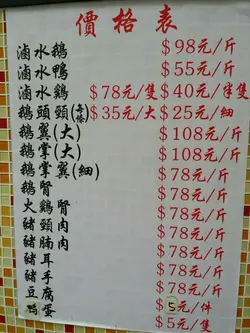 價格表
滷水鵝 $98元/斤
滷水鴨 $55元/斤
滷水鷄 $78元/隻 $40元/半隻
鵝頭頸(每條) $35元/大 $25元/細
鵝翼(大) $108元/斤
鵝掌(大) $108元/斤
鵝掌翼(細) $78元/斤
鵝腎 $78元/斤
火鷄腎 $78元/斤
豬頸肉 $78元/斤
豬腩肉 $78元/斤
豬耳 $78元/斤
豬手 $78元/斤
豆腐 $5元/件
鴨蛋 $5元/隻